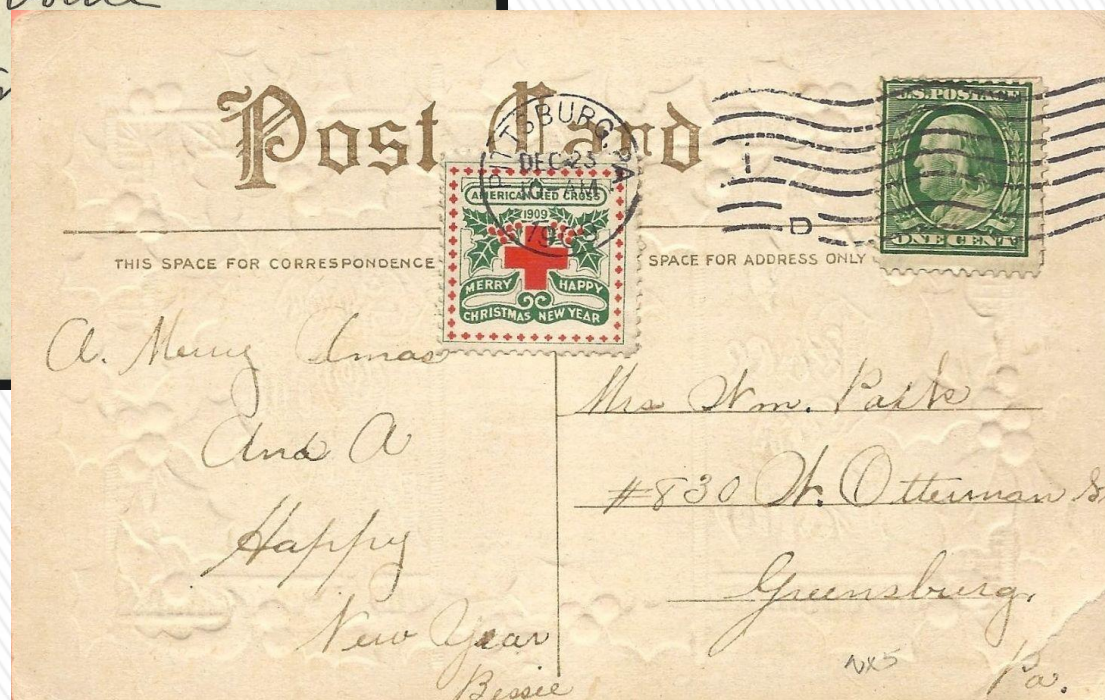 Post Card
PITTSBURG, PA
DEC 23
10 - AM
1909
1
D
U.S. POSTAGE
ONE CENT
AMERICAN RED CROSS
1909
MERRY HAPPY
CHRISTMAS NEW YEAR
THIS SPACE FOR CORRESPONDENCE
SPACE FOR ADDRESS ONLY
A. Merry Xmas
And A
Happy
New Year
Bessie
Mrs Wm.
#830 W. Otterman
Greensburg,
Pa.
NX5